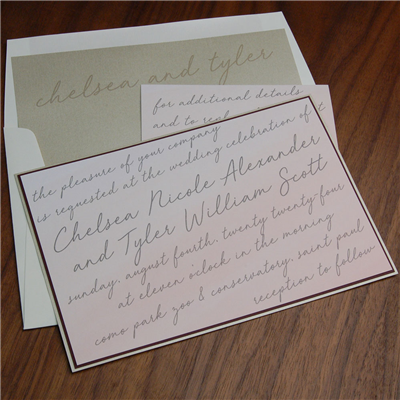 chelsea and tyler
for additional details
and to reply
the pleasure of your company
is requested at the wedding celebration of
Chelsea Nicole Alexander
and Tyler William Scott
sunday, august fourth, twenty twenty four
at eleven o'clock in the morning
como park zoo & conservatory, saint paul
reception to follow